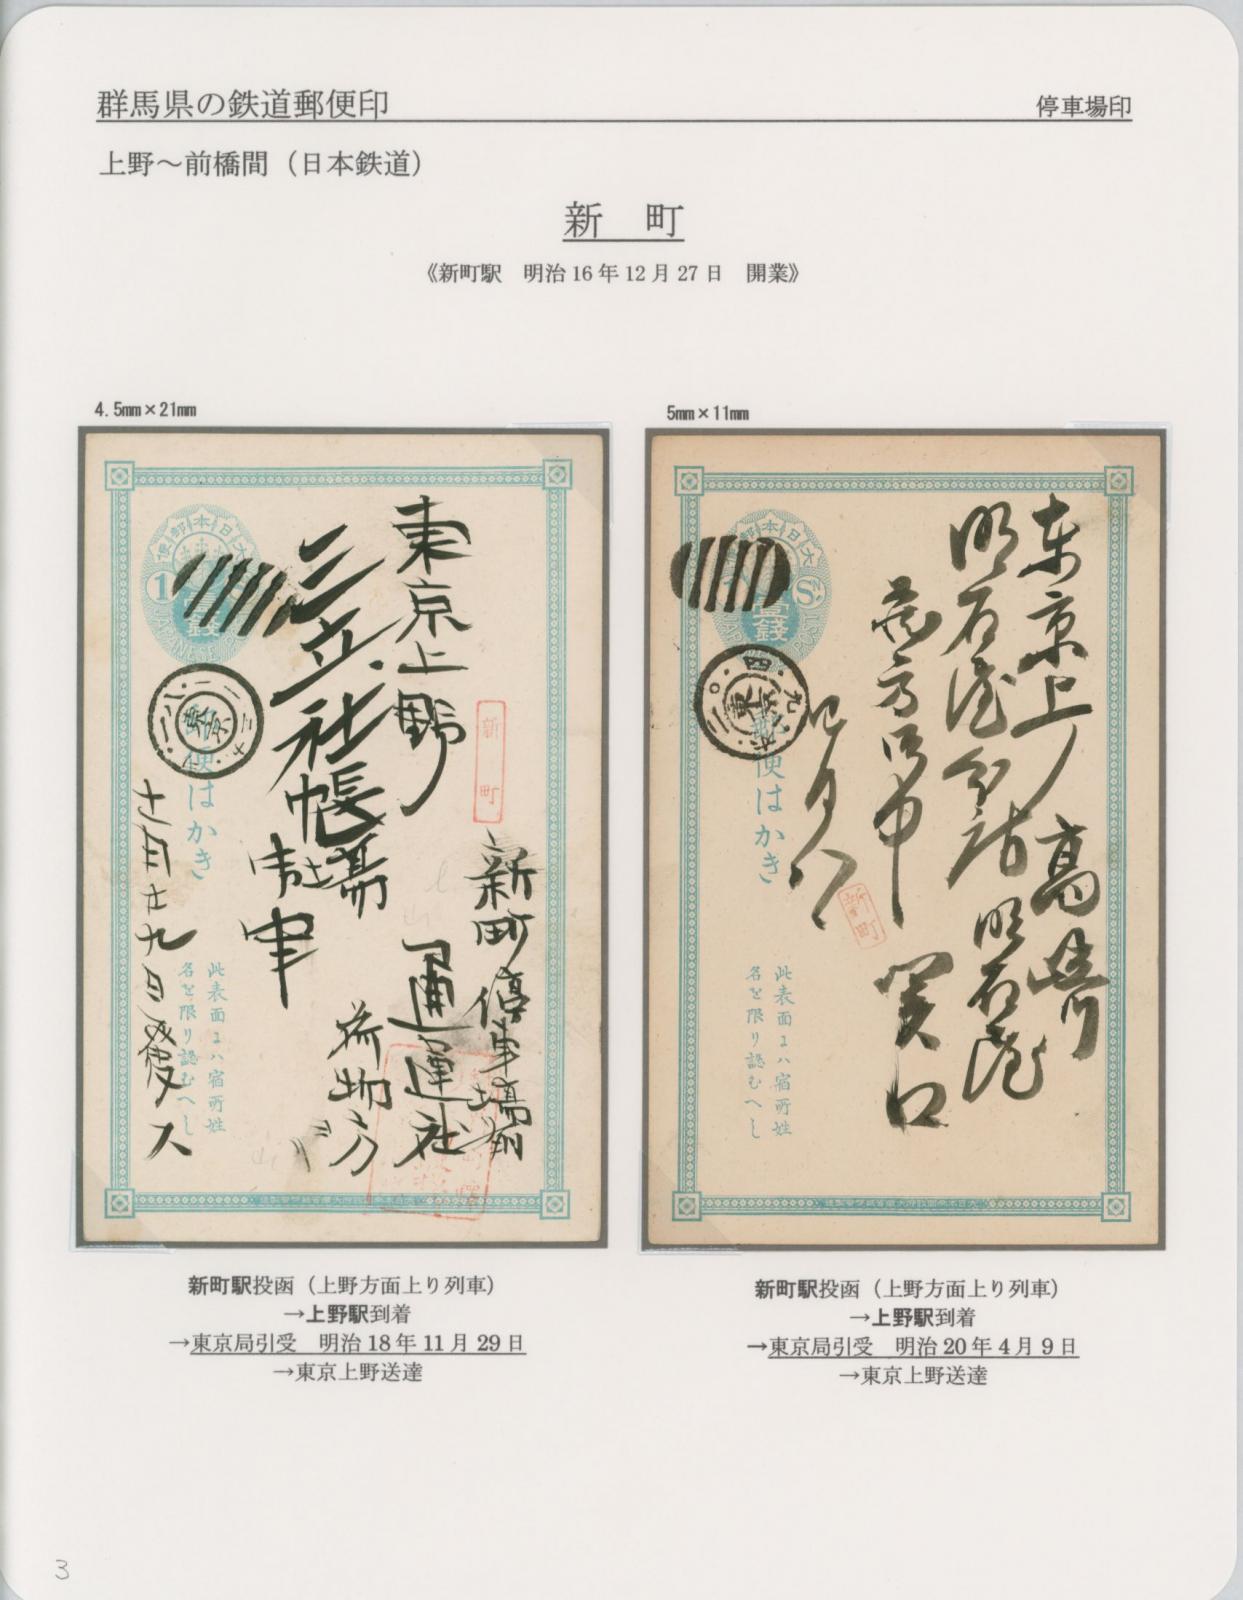 群馬県の鉄道郵便印
停車場印
上野～前橋間（日本鉄道）
新　町
《新町駅　明治16年12月27日　開業》
4.5mm×21mm
東京上野
三立社帳場
新町
新町停車場前
通運社
荷物方
十一月廿九日発ス
郵便はかき
此表面ニハ宿所姓
名を限り認むへし
新町駅投函（上野方面上り列車）
→上野駅到着
→東京局引受　明治18年11月29日
→東京上野送達
5mm×11mm
東京上ノ
明石屋
高崎
明石屋
関口
四月八
新町
便はかき
此表面ニハ宿所姓
名を限り認むへし
新町駅投函（上野方面上り列車）
→上野駅到着
→東京局引受　明治20年4月9日
→東京上野送達
3